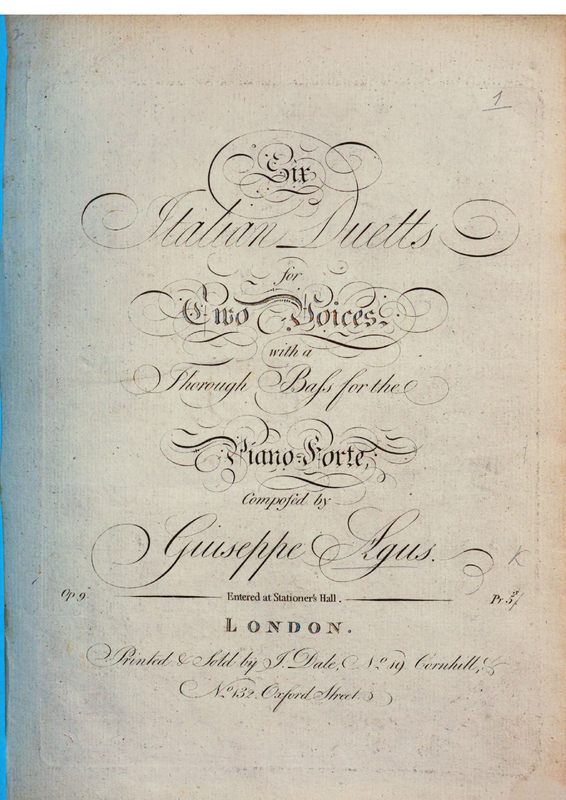 1
Six
Italian Duetts
for
Two Voices.
with a
Thorough Baſs for the
Piano=Forte,
Compoſed by
Giuseppe Agus.
K
Op. 9 Entered at Stationer's Hall. Pr.
LONDON.
Printed & Sold by J. Dale, No. 19 Cornhill, &
No. 132. Oxford Street.